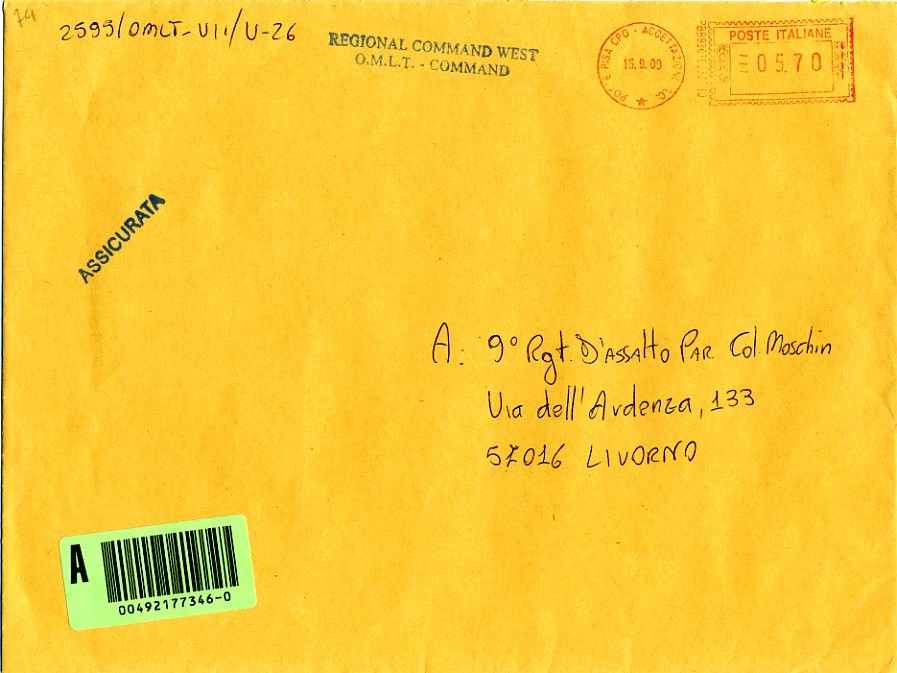 74
2599/OMLT-VII/U-26
REGIONAL COMMAND WEST
O.M.L.T. - COMMAND
PISA CPO - ACCETTAZIONE
15.9.09
POSTE ITALIANE
05.70
ASSICURATA
A: 9° Rgt. D'ASSALTO PAR. Col. Moschin
Via dell'Ardenza, 133
57016 LIVORNO
A
00492177346-0